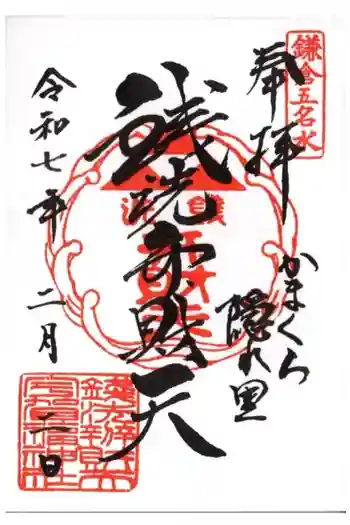 鎌倉五名水
奉拝
かまくら
隠れ里
銭洗弁財天
令和七年二月二日